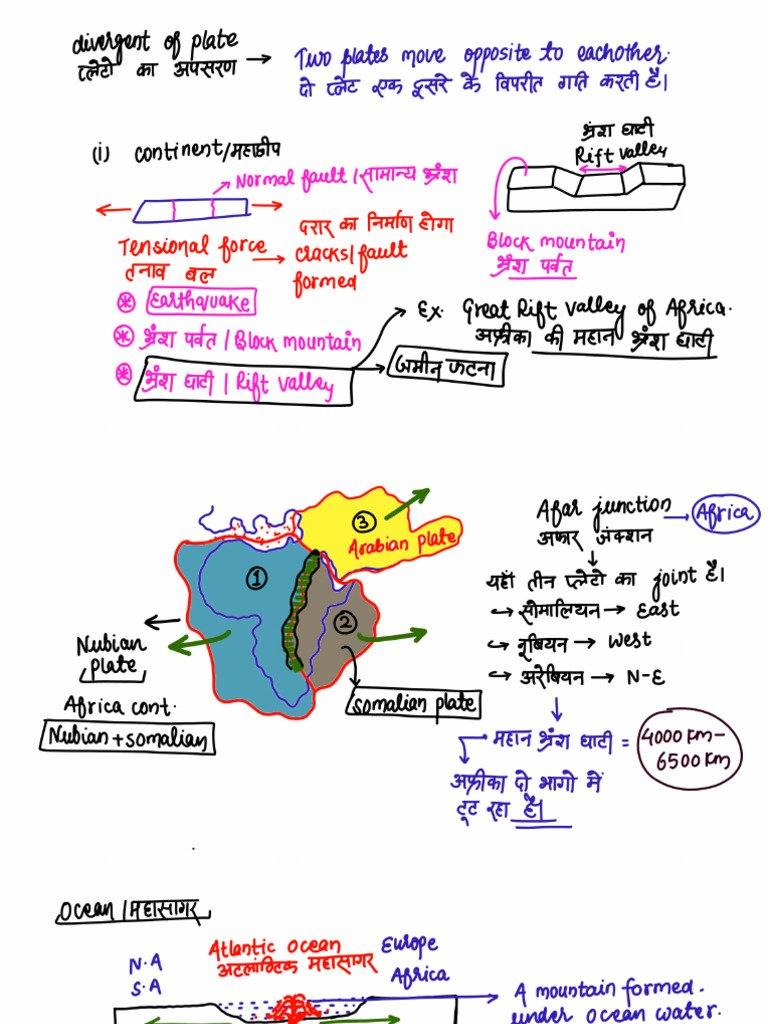 divergent of plate
प्लेटो का अपसरण → Two plates move opposite to eachother.
दो प्लेट एक दूसरे के विपरीत गति करती है।
(i) continent/महाद्वीप
भ्रंश घाटी
Rift valley
Normal fault / सामान्य भ्रंश
Tensional force
तनाव बल
दरार का निर्माण होगा
cracks/fault
formed
Block mountain
भ्रंश पर्वत
Earthquake
भ्रंश पर्वत / Block mountain
भ्रंश घाटी / Rift valley
Ex. Great Rift valley of Africa.
अफ्रीका की महान भ्रंश घाटी
जमीन फटना
3
Arabian plate
1
2
Nubian
plate
Africa cont.
Nubian + somalian
somalian plate
Afar junction → Africa
अफार जंक्शन
यहाँ तीन प्लेटो का joint है।
सोमालियन → East
नूबियन → West
अरेबियन → N-E
महान भ्रंश घाटी = 4000 KM-
6500 KM
अफ्रीका दो भागो में
टूट रहा है।
ocean/महासागर
N.A
S.A
Atlantic ocean
अटलांटिक महासागर
Europe
Africa
A mountain formed.
under ocean water.